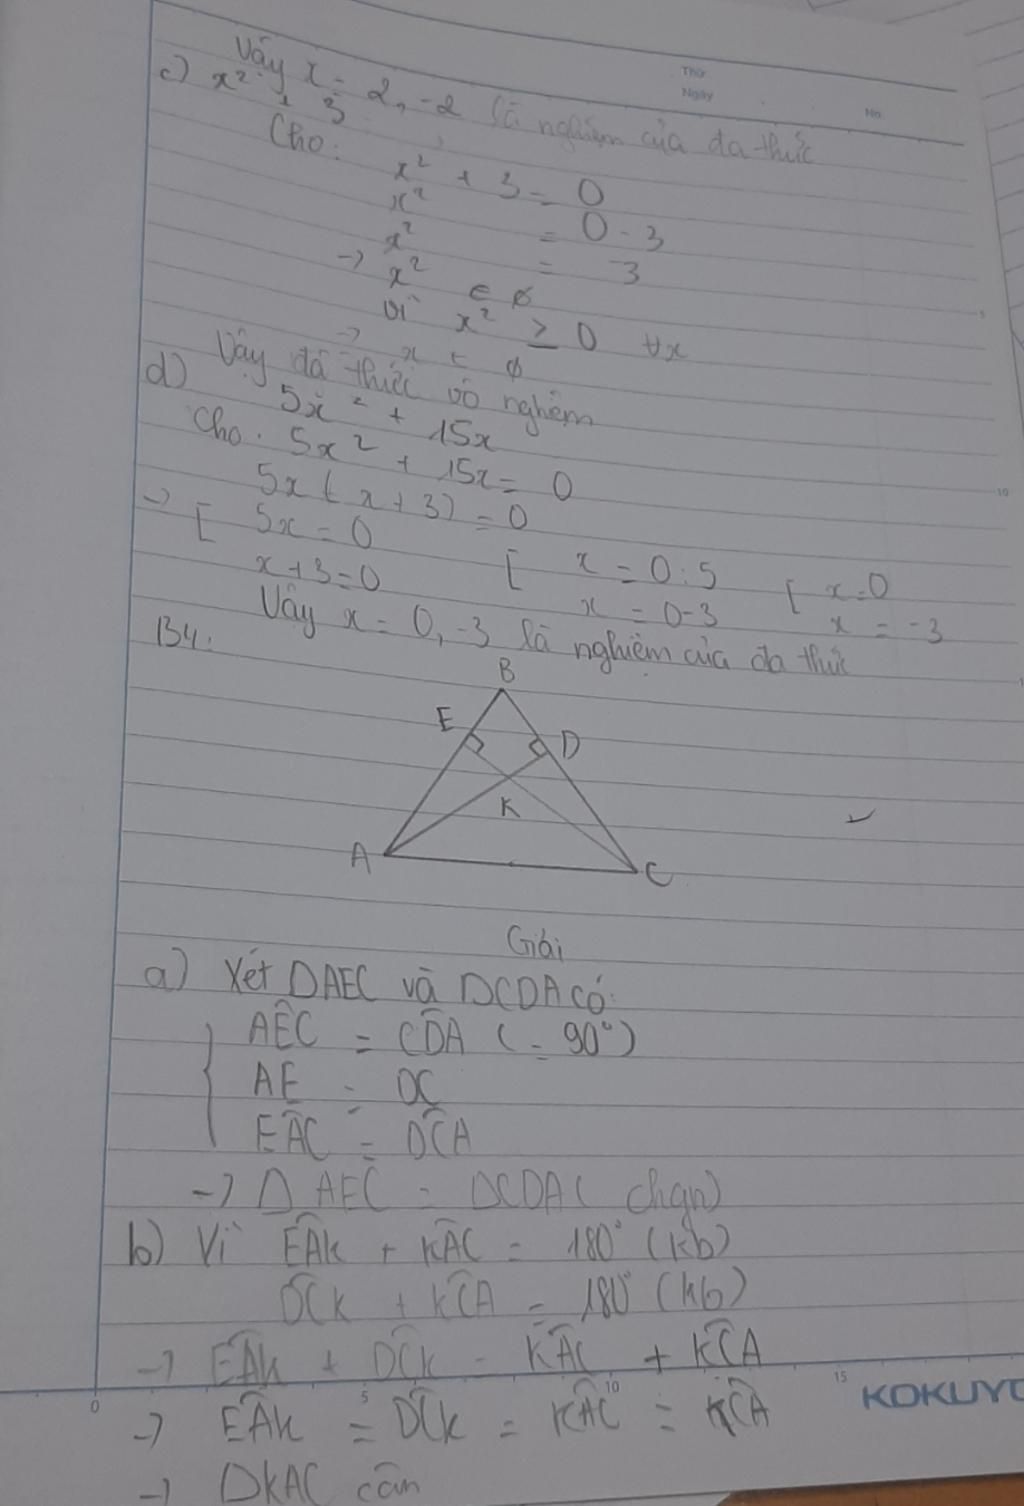 Thứ
Ngày
No.
Vậy x = 2, -2 là nghiệm của đa thức
c) x² + 3
Cho: x² + 3 = 0
x² = 0 - 3
x² = -3
-> x² ∈ ∅
Vì x² ≥ 0 ∀x
-> x ∈ ∅
Vậy đa thức vô nghiệm
d) 5x² + 15x
Cho. 5x² + 15x = 0
5x ( x + 3) = 0
-> [ 5x = 0 [ x = 0 : 5 [ x = 0
x + 3 = 0 x = 0 - 3 x = -3
Vậy x = 0, -3 là nghiệm của đa thức
B4:
B
E
D
K
A
C
Giải
a) Xét DAEC và DCDA có:
AÊC = CD̂A ( = 90°)
AE = DC
EÂC = DĈA
-> Δ AEC = DCDA ( chgn)
b) Vì EÂK + KÂC = 180° (kb)
DĈK + KĈA = 180° (kb)
-> EÂK + DĈK = KÂC + KĈA
-> EÂK = DĈK = KÂC = KĈA
-> DKAC cân
0
5
10
15
KOKUYO